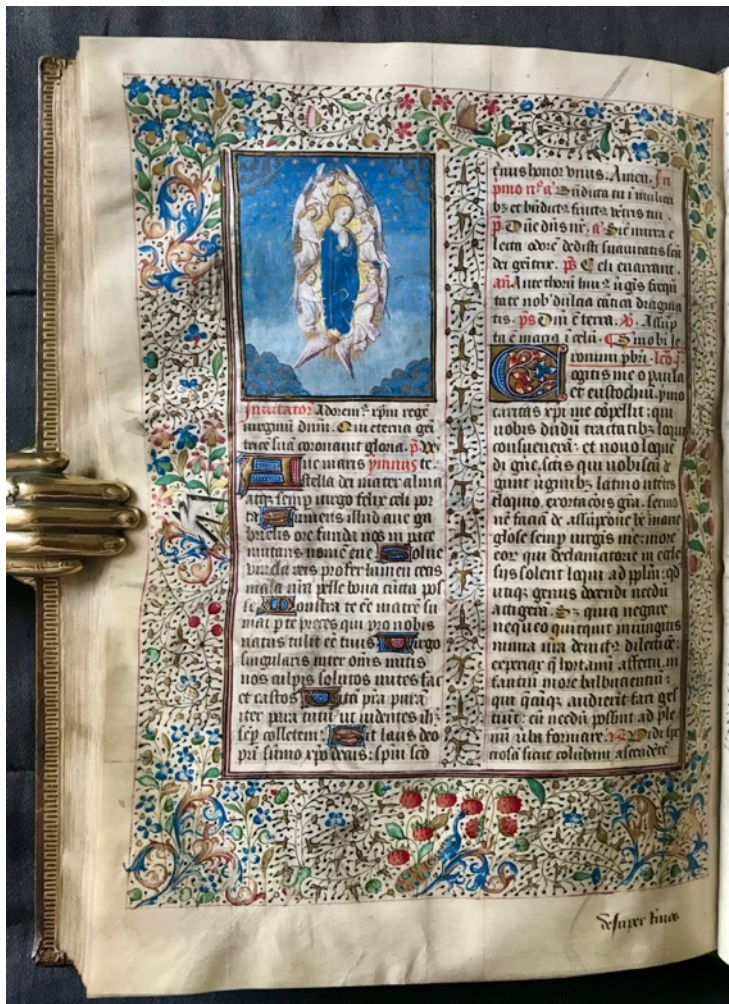 Inuitator Adorem⁹ xp̄m regē
uirginū dn̄m. Qui eterna gei
trice suā coronauit gloria. p̄. Ve
nite maris ymnus te.
A
stella dei mater alma
atqꝫ semp uirgo felix celi por
ta Sumens illud aue ga
brielis ore funda nos in pace
mutans nomē eue Solue
uincla reis profer lumen cecis
mala nr̄a pelle bona cūcta pos
ce Monstra te eē matrē su
mat p te preces qui pro nobis
natus tulit eē tuus Uirgo
singularis inter om̄is mitis
nos culpis solutos mites fac
et castos Uitā pra purā
iter para tutū ut uidentes ihꝫ
sēp colletem⁹ Sit laus deo
pr̄i sūmo xp̄o decus: spiri sc̄o
t̄nus honor unus. Amen. In
pmo n̄º a⁹ Bn̄dicta tu ī mulieri
bꝫ et bn̄dict⁹ fruct⁹ uētris tui
p̄. Dn̄e dn̄s nr̄. a⁹. Sic⁹ mirra e
lecta odorē dedisti suauitatis sc̄a
dei geītrix. p̄s Celi enarrant.
an̄ Ante thorū hui⁹ uͥgīs freqū
tate nob̄ dulcia cātica dragma
tis. p̄s Dn̄i ē terra. V. Assūp
ta ē maria ī celū. Smō bī Ie
ronimi pb̄ri. lcō .
C
ogitis me o paula
et eustochiū. ymo
caritas xp̄i me cōpellit: qui
uobis dudū tractatibꝫ loqui
consueuerā: et nouo loque
di gn̄e. sc̄tis qui uobiscū de
gunt uͥginibꝫ latino utētes
eloquio, exortacōis gr̄a. sermo
nē faciā de assūpcōne bē marie
gl̄ose semp uirgīs mē: more
eor qui declamatorie in eccle
siis solent loqui ad pplm̄: qd̄
utiqꝫ genus docendi necdū
attigerā. Sꝫ quia negare
nequeo quitquit iniungitis
nimia ur̄a deuict⁹ dilectiōe:
experiar qd̄ hortamī affectu, in
fantiū more balbucientiū:
qui q̄cūqꝫ audierīt fari ges
tiūt: cū necdū possint ad ple
nū u̇ba formare. R⁊ Uidi spe
ciosā sicut colūbam ascendētē
desuper riuos